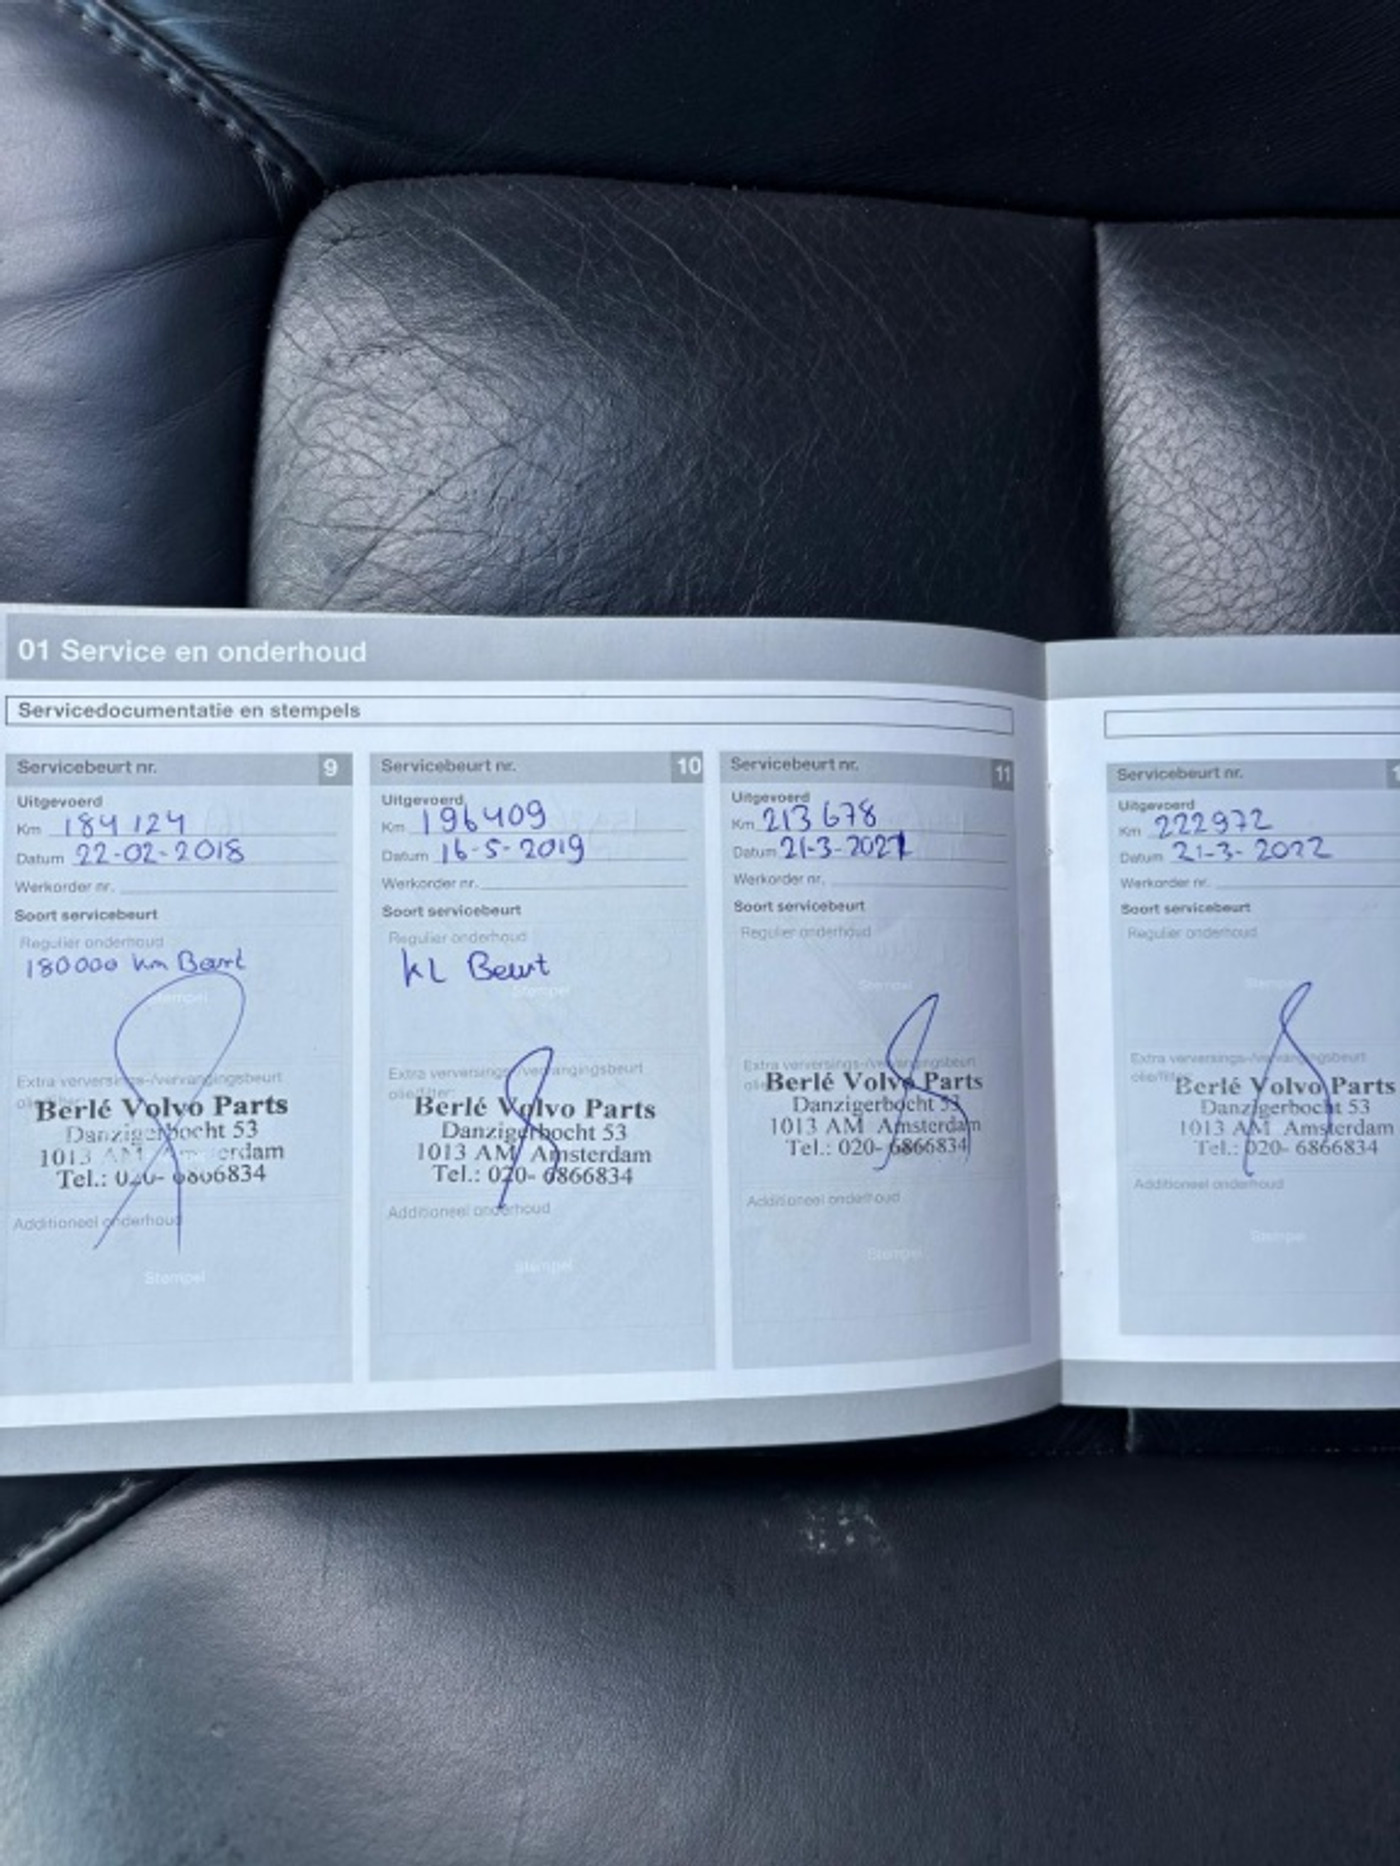 01 Service en onderhoud
Servicedocumentatie en stempels
Servicebeurt nr. 9
Uitgevoerd
Km 184124
Datum 22-02-2018
Werkorder nr.
Soort servicebeurt
Regulier onderhoud
180000 km Beurt
Stempel
Extra verversings-/vervangingsbeurt
Berlé Volvo Parts
Danzigerbocht 53
1013 AM Amsterdam
Tel.: 020- 6866834
Additioneel onderhoud
Stempel
Servicebeurt nr. 10
Uitgevoerd
Km 196409
Datum 16-5-2019
Werkorder nr.
Soort servicebeurt
Regulier onderhoud
KL Beurt
Stempel
Extra verversings-/vervangingsbeurt
olie/filter:
Berlé Volvo Parts
Danzigerbocht 53
1013 AM Amsterdam
Tel.: 020- 6866834
Additioneel onderhoud
Stempel
Servicebeurt nr. 11
Uitgevoerd
Km 213678
Datum 21-3-2021
Werkorder nr.
Soort servicebeurt
Regulier onderhoud
Stempel
Extra verversings-/vervangingsbeurt
Berlé Volvo Parts
Danzigerbocht 53
1013 AM Amsterdam
Tel.: 020- 6866834
Additioneel onderhoud
Stempel
Servicebeurt nr.
Uitgevoerd
Km 222972
Datum 21-3-2022
Werkorder nr.
Soort servicebeurt
Regulier onderhoud
Stempel
Extra verversings-/vervangingsbeurt
olie/filter:
Berlé Volvo Parts
Danzigerbocht 53
1013 AM Amsterdam
Tel.: 020- 6866834
Additioneel onderhoud
Stempel